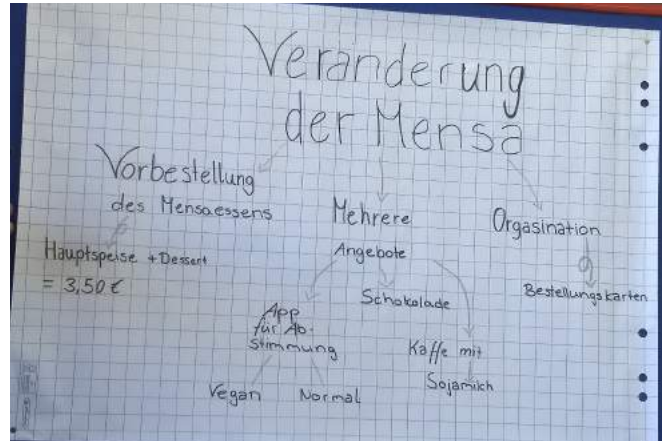 Veränderung
der Mensa
Vorbestellung
des Mensaessens
Hauptspeise + Dessert
= 3,50 €
Mehrere
Angebote
App
für Ab-
stimmung
Vegan
Normal
Schokolade
Kaffe mit
Sojamilch
Orgasination
Bestellungskarten